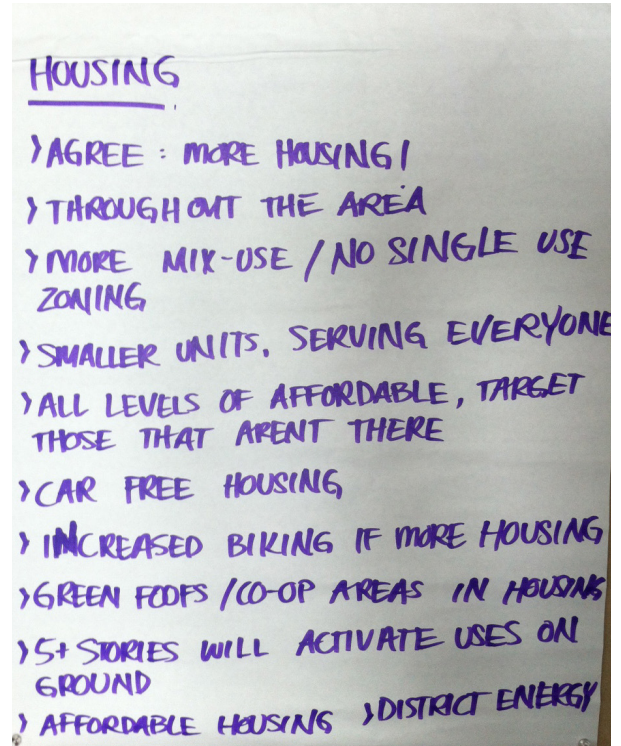 HOUSING
> AGREE : MORE HOUSING!
> THROUGHOUT THE AREA
> MORE MIX-USE / NO SINGLE USE
ZONING
> SMALLER UNITS, SERVING EVERYONE
> ALL LEVELS OF AFFORDABLE, TARGET
THOSE THAT ARENT THERE
> CAR FREE HOUSING
> INCREASED BIKING IF MORE HOUSING
> GREEN FOOFS / CO-OP AREAS IN HOUSING
> 5+ STORIES WILL ACTIVATE USES ON
GROUND
> AFFORDABLE HOUSING > DISTRICT ENERGY